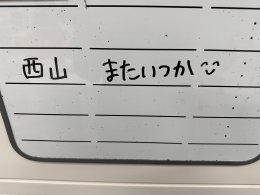 西山 またいつか